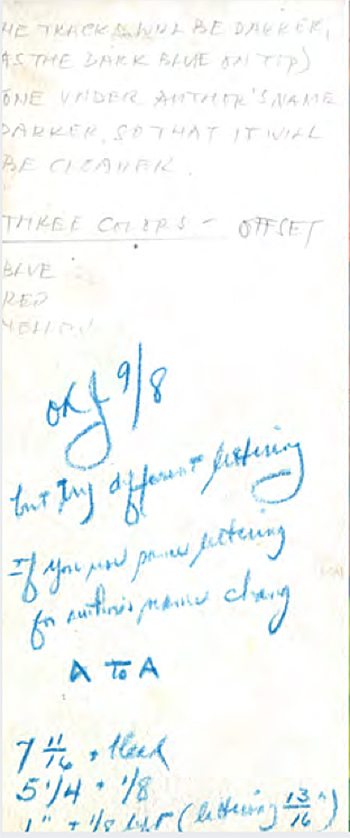 HE TRACKS WILL BE DARKER,
AS THE DARK BLUE ON TOP)
ONE UNDER AUTHOR'S NAME
DARKER, SO THAT IT WILL
BE CLEANER.
THREE COLORS - OFFSET
BLUE
RED
YELLOW
9/8
but try different lettering
If you use same lettering
for author's name chang
A TO A
7 11/16 +
5 1/4 + 1/8
1" + 1/8 (lettering 13/16")